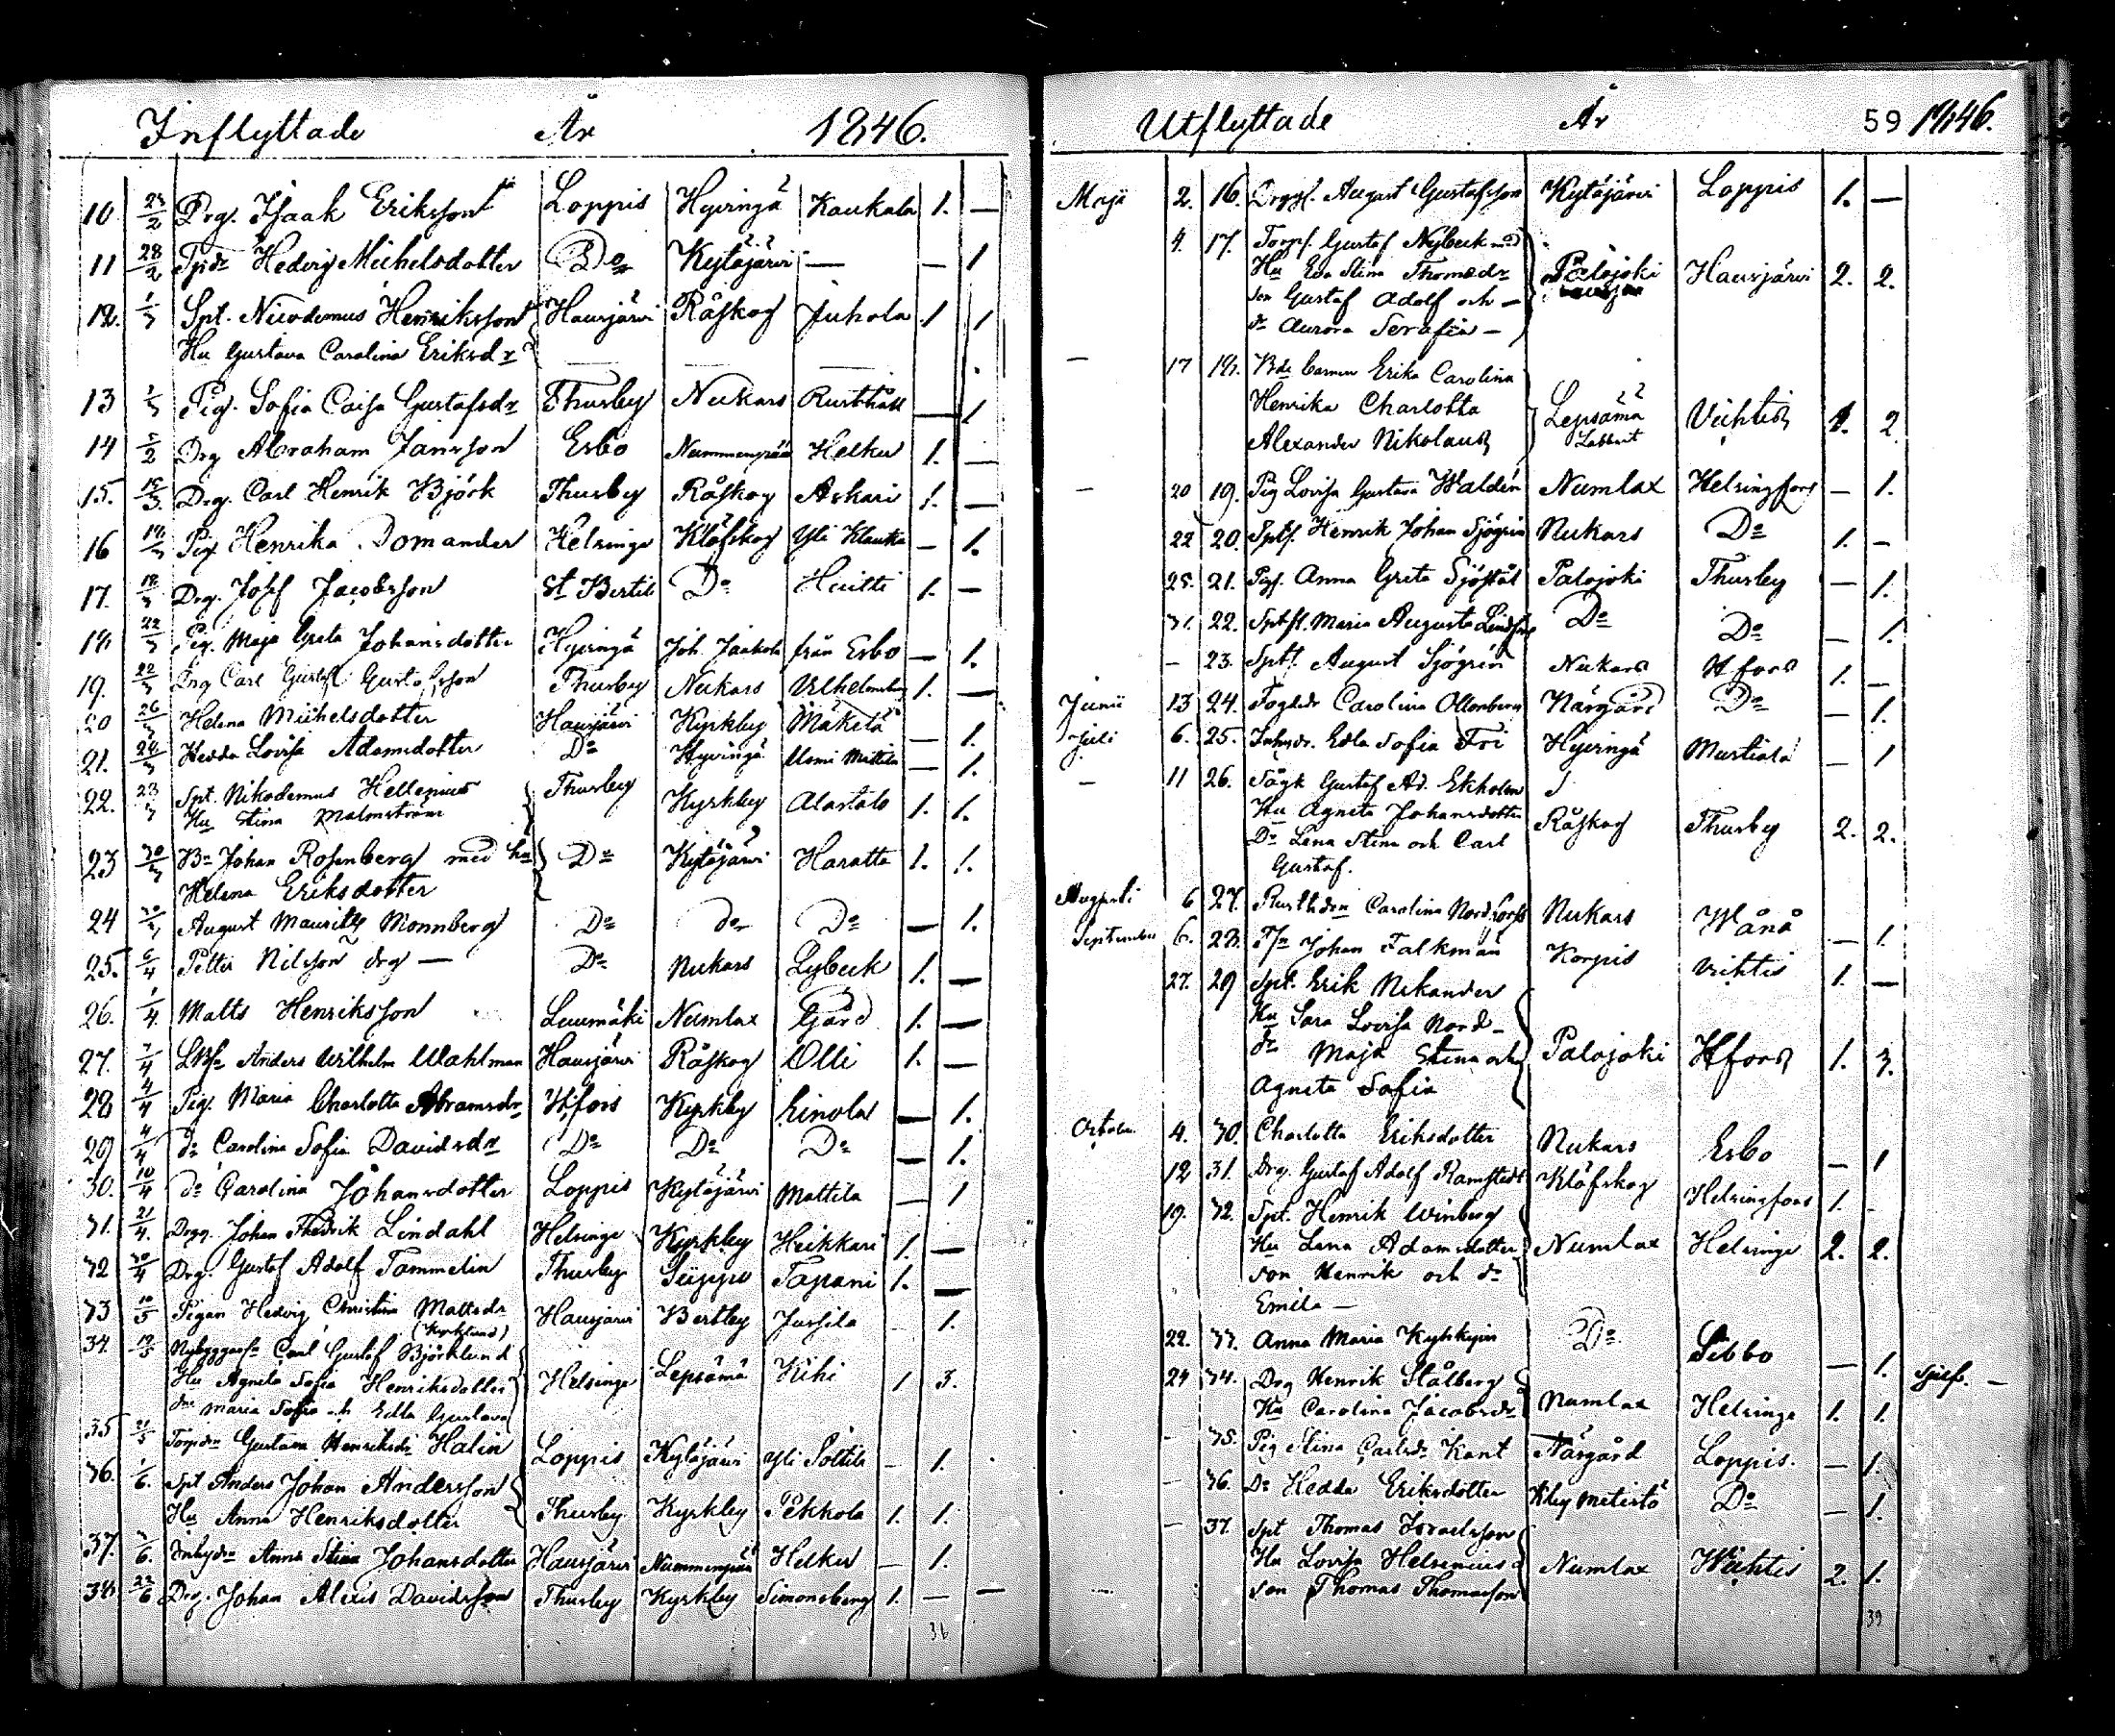 Inflyttade År 1846.
10 23/2 Drg. Isaak Eriksson Loppis Hyvingä Kaukala 1. —
11 28/2 Hedvig Michelsdotter Do Kytäjärvi — — 1
12. 1/3 Spt. Nicodemus Henriksson Hausjärvi Råskog Juhola 1 1
Hu Gustava Carolina Eriksdr
13 1/3 Pig. Sofia Caisa Gustafsdr Thusby Nukars Rusthåll — 1
14 2/2 Drg Abraham Jansson Esbo Nummenpää Helku 1. —
15. 15/3 Drg. Carl Henrik Björk Thusby Råskog Askari 1. —
16 18/3 Pig Henrika Domander Helsinge Klöfskog Yli Klaukka — 1.
17. 18/3 Drg. Josef Jacobsson St Bertils Do Huitti 1. —
18. 22/3 Pig. Maja Greta Johansdotter Hyvingä Joh. Jaakola från Esbo — 1.
19. 22/3 Drg Carl Gustaf Gustafsson Thusby Nukars Vilhelmsberg 1. —
20 26/3 Helena Michelsdotter Hausjärvi Kyrkby Mäkelä — 1.
21. 28/3 Hedda Lovisa Adamsdotter Do Hyvingä Usmi Mattila — 1.
22. 23/3 Spt. Nikodemus Hellenius Thusby Kyrkby Alastalo 1. 1.
Hu Stina Malmström
23 30/3 Johan Rosenberg med hu Do Kytäjärvi Haratta 1. 1.
Helena Eriksdotter
24 30/3 August Mauritz Monnberg Do do Do — 1.
25. 6/4 Petter Nilsson drg — Do Nukars Lybeck 1. —
26. 1/4. Matts Henriksson Luumäki Numlax Gård 1. —
27. 7/4 Anders Wilhelm Wahlman Hausjärvi Råskog Olli 1. —
28 4/4 Pig. Maria Charlotta Abramsdr Hfors Kyrkby Einola — 1.
29 4/4 do Carolina Sofia Davidsdr Do Do Do — 1.
30. 10/4 do Carolina Johansdotter Loppis Kytäjärvi Mattila — 1
31. 21/4. Johan Fredrik Lindahl Helsinge Kyrkby Heikkari 1. —
32 30/4 Drg. Gustaf Adolf Tammelin Thusby Siippo Tapani 1. —
33 10/5 Pigan Hedvig Christina Mattsdr Hausjärvi Bertby Jussila — 1.
34. 19/5 Carl Gustaf Björklund
Hu Agneta Sofia Henriksdotter Helsinge Lepsämä Kihi 1 3.
Maria Sofia och Edla Gustava
35 21/5 Gustava Henriksdr Halin Loppis Kytäjärvi Yli Solttila — 1.
36. 1/6. Spt Anders Johan Andersson
Hu Anna Henriksdotter Thusby Kyrkby Pekkola 1. 1.
37. 3/6. Inhysdr Anna Stina Johansdotter Hausjärvi Nummenpää Helku — 1.
38. 22/6 Drg. Johan Alexis Davidsson Thusby Kyrkby Simonsberg 1. — —
36
Utflyttade År 59 1846.
Maji 2. 16. August Gustafsson Kytäjärvi Loppis 1. —
4. 17. Gustaf Nybeck med
Hu Eva Stina Thomasdr Palojoki Hausjärvi 2. 2.
son Gustaf Adolf och —
dr Aurora Serafia —
— 17 18. barnen Erika Carolina
Henrika Charlotta Lepsämä Vichtis 1. 2.
Alexander Nikolaus
— 20 19. Pig Lovisa Gustava Waldén Numlax Helsingfors — 1.
22 20. Henrik Johan Sjögrén Nukars Do 1. —
25. 21. Pig. Anna Greta Sjöstål Palojoki Thusby — 1.
31. 22. Maria Augusta Do Do — 1.
— 23. August Sjögrén Nukars Hfors 1. —
Junii 13 24. Carolina Ollonberg Närgård Do — 1.
Juli 6. 25. Edla Sofia Fri Hyvingä Mustiala — 1
— 11 26. Gustaf Ad. Ekholm
Hu Agneta Johansdotter Råskog Thusby 2. 2.
Dr Lena Stina och Carl
Gustaf.
Augusti 6 27. Carolina Nordfors Nukars Månå — 1.
September 6. 28. Johan Falkman Korpis Vihtis 1. —
27. 29 Spt. Erik Nikander
Hu Sara Lovisa Nord-
dr Maja Stina och Palojoki Hfors 1. 3.
Agneta Sofia
October 4. 30. Charlotta Eriksdotter Nukars Esbo — 1
12 31. Drg. Gustaf Adolf Ramstedt Klöfskog Helsingfors 1. —
19. 32. Spt. Henrik Winberg
Hu Lena Adamsdotter Numlax Helsinge 2. 2.
son Henrik och dr
Emila —
22. 33. Anna Maria Do Sibbo — 1.
24 34. Drg Henrik Stålberg
Hu Carolina Jacobsdr Numlax Helsinge 1. 1.
— 35. Pig Stina Carlsdr Kant Närgård Loppis. — 1.
— 36. Do Hedda Eriksdotter Do — 1.
— 37. Spt Thomas Israelsson
Hu Lovisa Helsenius Numlax Wichtis 2. 1.
son Thomas Thomasson
39